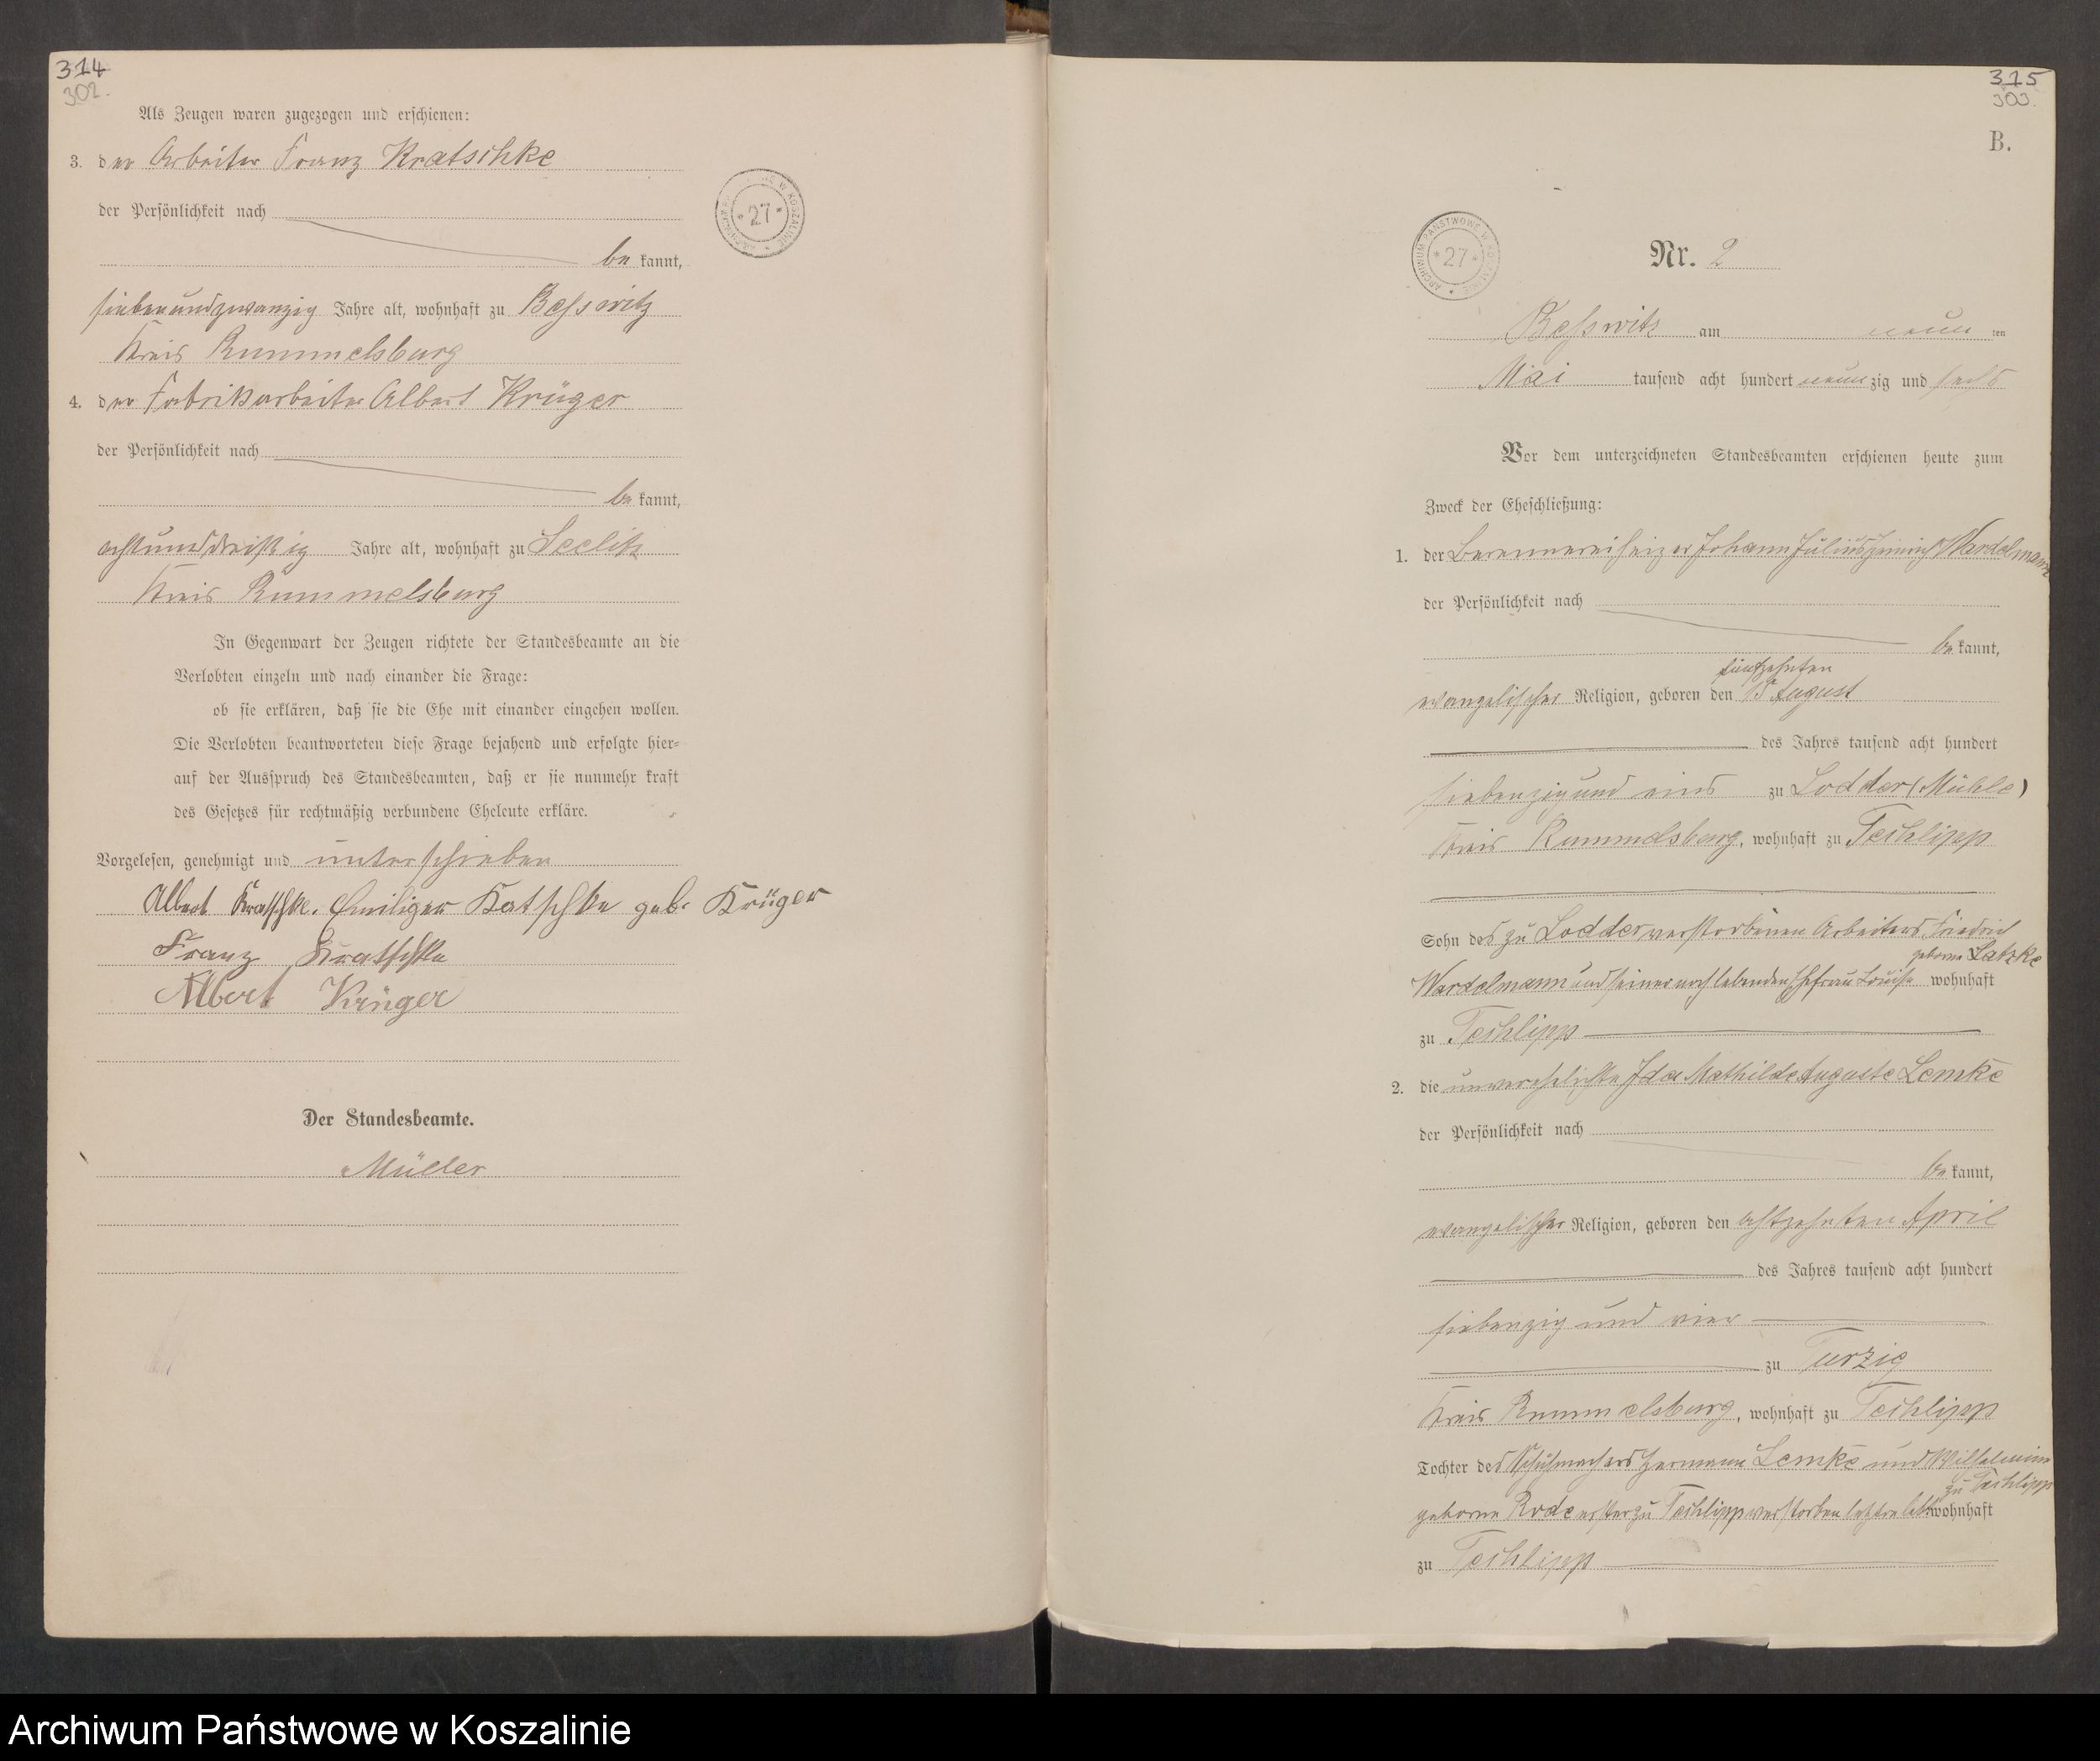 314
302.
Als Zeugen waren zugezogen und erschienen:
3. der Arbeiter Franz Kratschke
der Persönlichkeit nach
be kannt,
siebenundzwanzig Jahre alt, wohnhaft zu Besswitz
Kreis Rummelsburg
4. der Fabrikarbeiter Albert Krüger
der Persönlichkeit nach
be kannt,
achtunddreißig Jahre alt, wohnhaft zu Seelitz
Kreis Rummelsburg
In Gegenwart der Zeugen richtete der Standesbeamte an die
Verlobten einzeln und nach einander die Frage:
ob sie erklären, daß sie die Ehe mit einander eingehen wollen.
Die Verlobten beantworteten diese Frage bejahend und erfolgte hier=
auf der Ausspruch des Standesbeamten, daß er sie nunmehr kraft
des Gesetzes für rechtmäßig verbundene Eheleute erkläre.
Vorgelesen, genehmigt und unterschrieben
Albert Kratschke. Katschke geb. Krüger
Franz Kratschke
Albert Krüger
Der Standesbeamte.
Müller
27
315
303.
B.
ARCHIWUM PAŃSTWOWE W KOSZALINIE
27
Nr. 2
Besswitz am neun ten
Mai tausend acht hundert neun zig und sechs
Vor dem unterzeichneten Standesbeamten erschienen heute zum
Zweck der Eheschließung:
1. der Brennereiheizer Johann Julius Heinrich Wardelmann
der Persönlichkeit nach
be kannt,
fünfzehnten
evangelischer Religion, geboren den 15 August
des Jahres tausend acht hundert
siebenzig und eins zu Lodder (Mühle)
Kreis Rummelsburg, wohnhaft zu Techlipp
Sohn des zu Lodder verstorbenen Arbeiters Friedrich
geborne Latzke
Wardelmann und seiner noch lebenden Ehefrau Louise wohnhaft
zu Techlipp
2. die unverehelichte Ida Mathilde Auguste Lemke
der Persönlichkeit nach
be kannt,
evangelischer Religion, geboren den achtzehnten April
des Jahres tausend acht hundert
siebenzig und vier
zu Turzig
Kreis Rummelsburg, wohnhaft zu Techlipp
Tochter des Schuhmachers Hermann Lemke und Wilhelmine
zu Techlipp
geborne Rode erster zu Techlipp verstorben letztre lebt wohnhaft
zu Techlipp
Archiwum Państwowe w Koszalinie